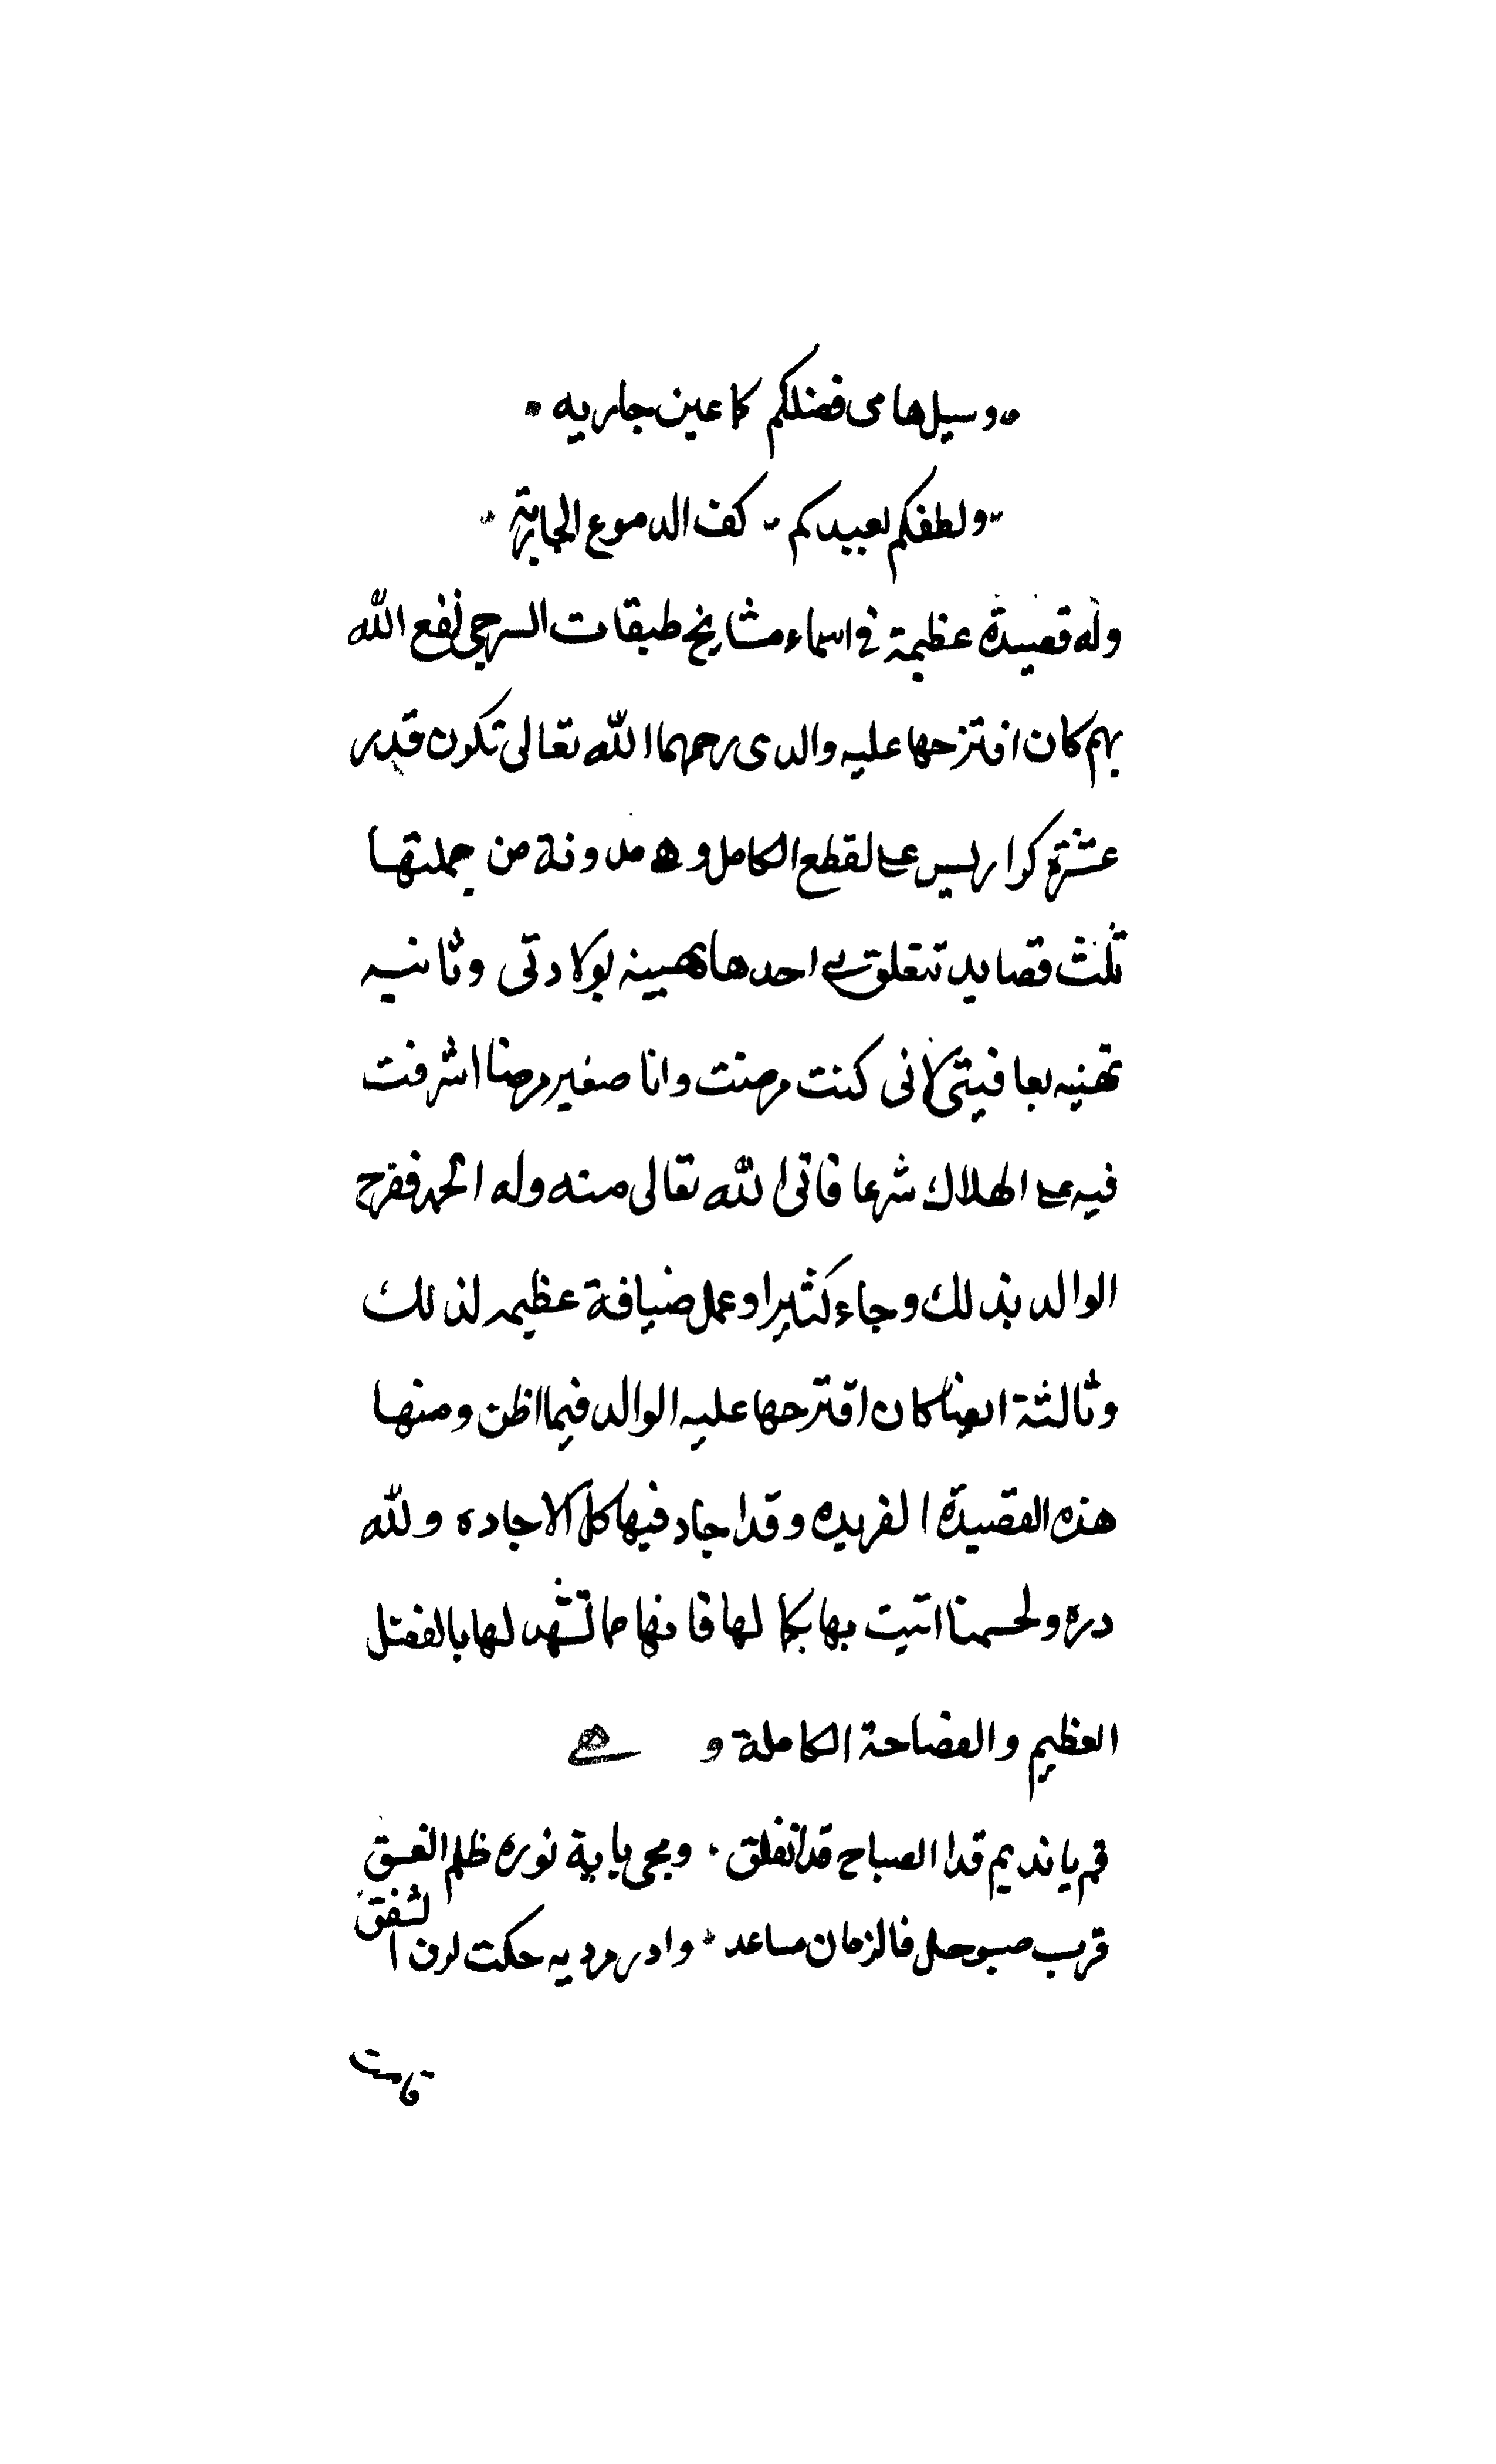 وسيل هامى فضلكم كاعين جاريه
ولطفكم لعبيدكم كف الدموع الجارية
وله قصيدة عظيمة في اسماء مشايخ طبقات السرجي نفع الله
بهم كان اقترحها عليه والدى رحمهما الله تعالى تكون قدر
عشرة كراريس على القطع الكامل وهى مدونة من جملتها
ثلث قصايد تتعلق بى احدها تهنية بولادتى وثانيه
تهنيه بعافيتى لانى كنت مرضت وانا صغير مرضا اشرفت
فيه على الهلاك شرعا فاتى الله تعالى منه وله الحمد ففرح
الوالد بذلك وجاء كثيرا وعمل ضيافة عظيمه لذلك
وثالثة ايضا كان اقترحها عليه الوالد فيما اظن ومنها
هذه القصيدة الفريده وقد اجاد فيها كل الاجاده ولله
دره ولحسنها اتيت بها بكمالها فانها مما تشهد لها بالفضل
العظيم والفصاحة الكاملة وهى
قم يا نديم قدا الصباح قد انفلق ومحى باية نوره ظلم الغسق
قرب صبوحك فالزمان مساعد وادر مرديه حكت لون الشفق